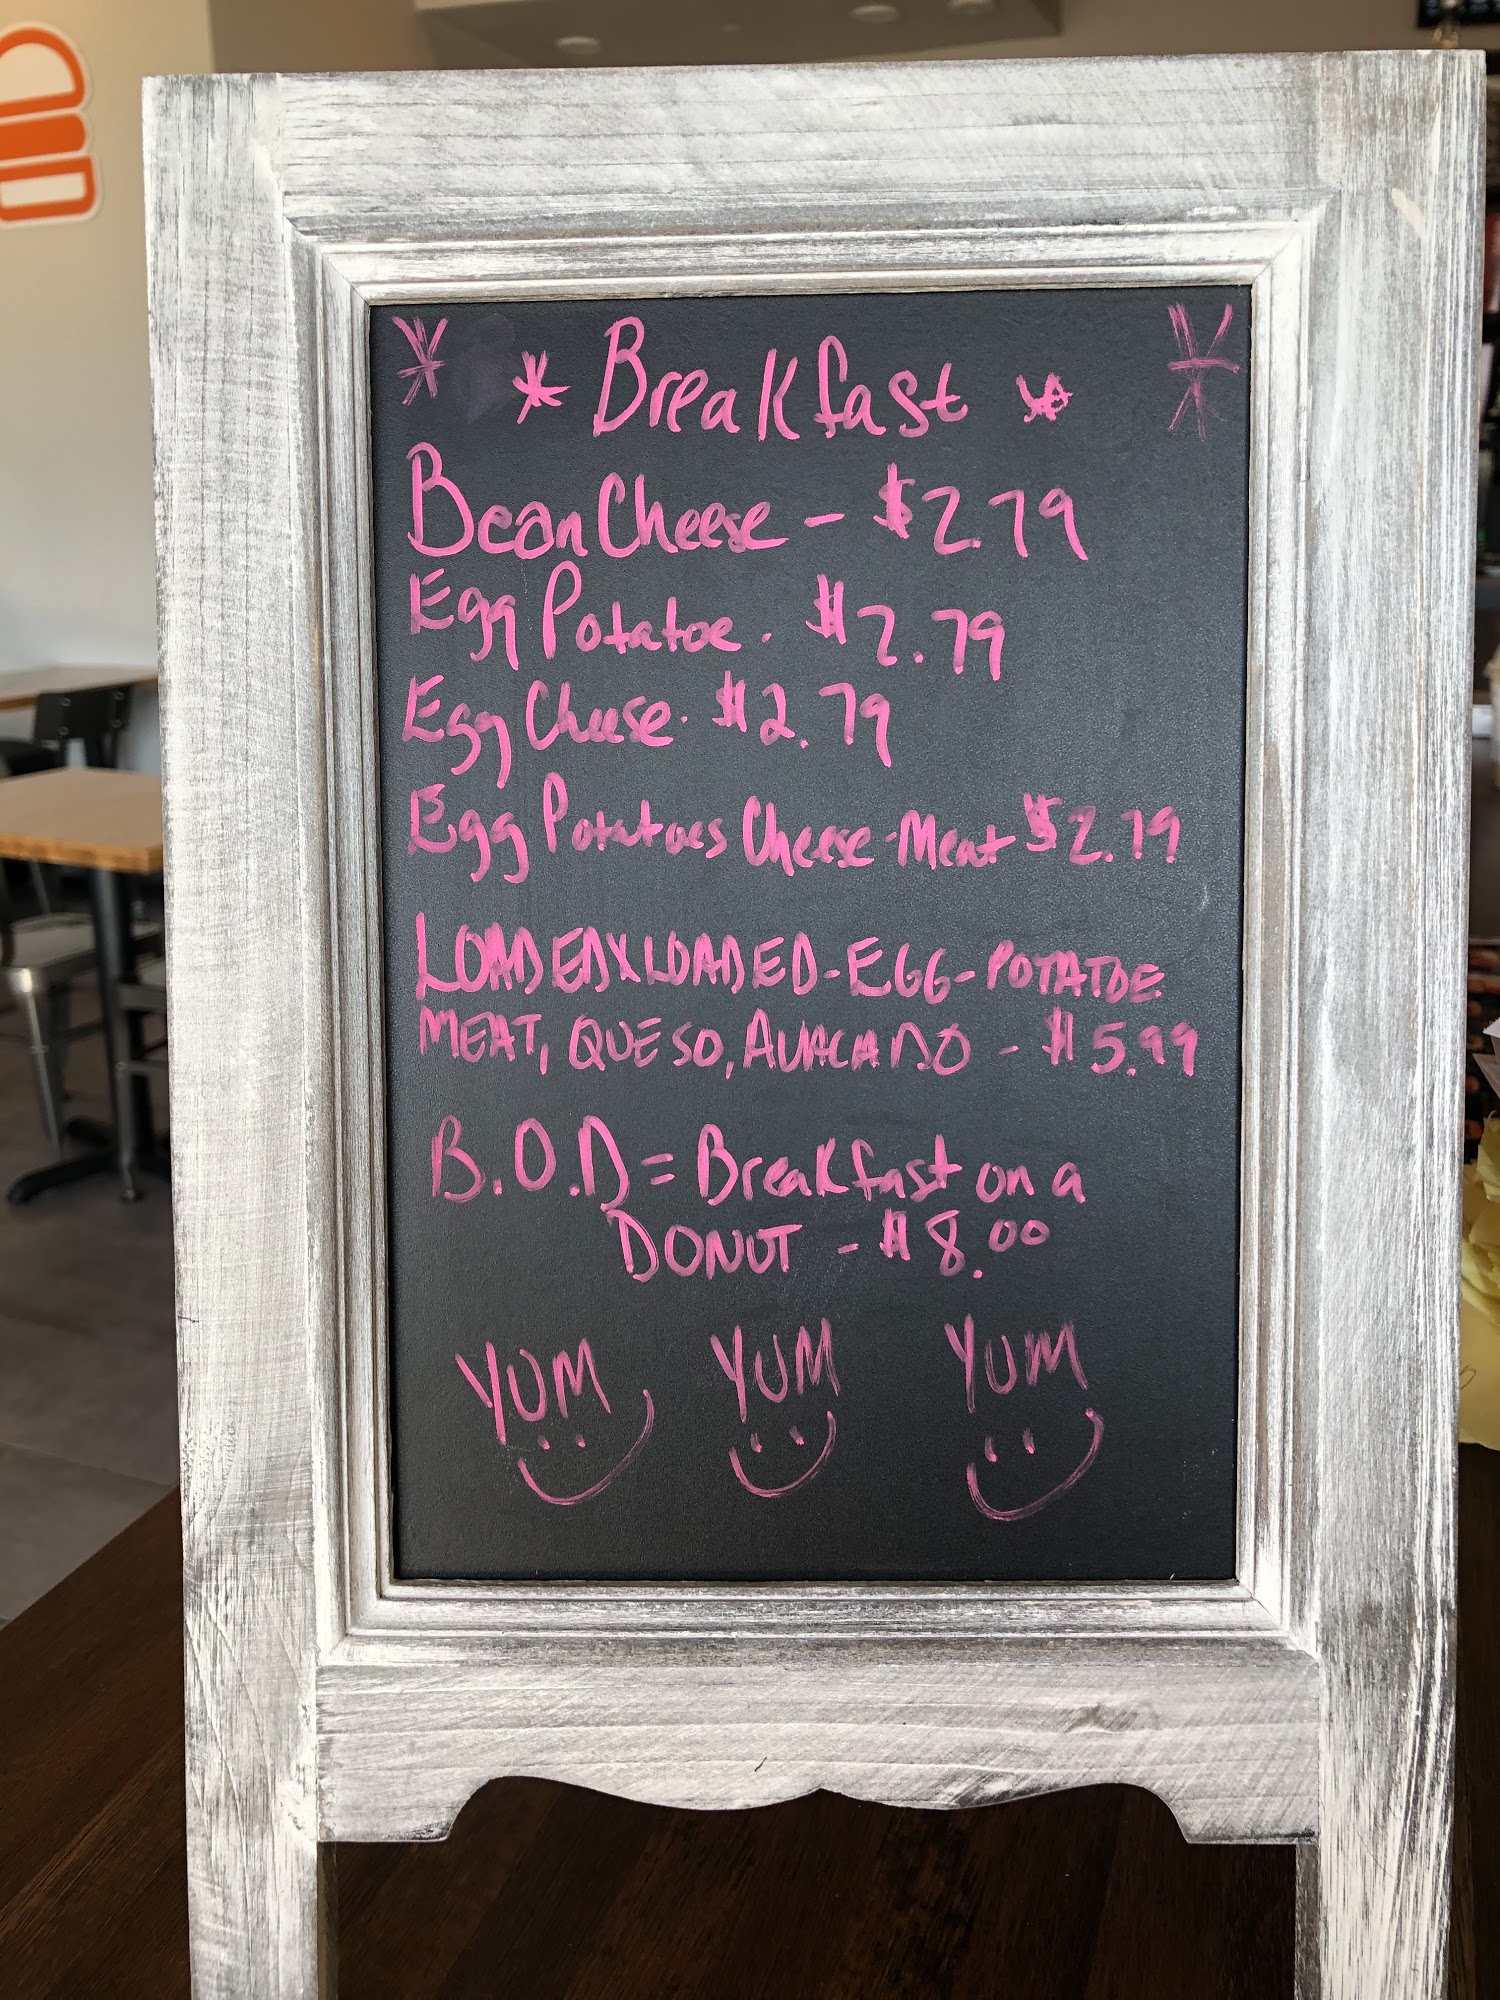 * * Breakfast * *
Bean Cheese - $2.79
Egg Potatoe . $2.79
Egg Cheese . $2.79
Egg Potatoes Cheese - Meat $2.79
LOADEDXLOADED-EGG-POTATOE
MEAT, QUESO, AVACADO - $5.99
B.O.D = Breakfast on a
DONUT - $8.00
YUM YUM YUM